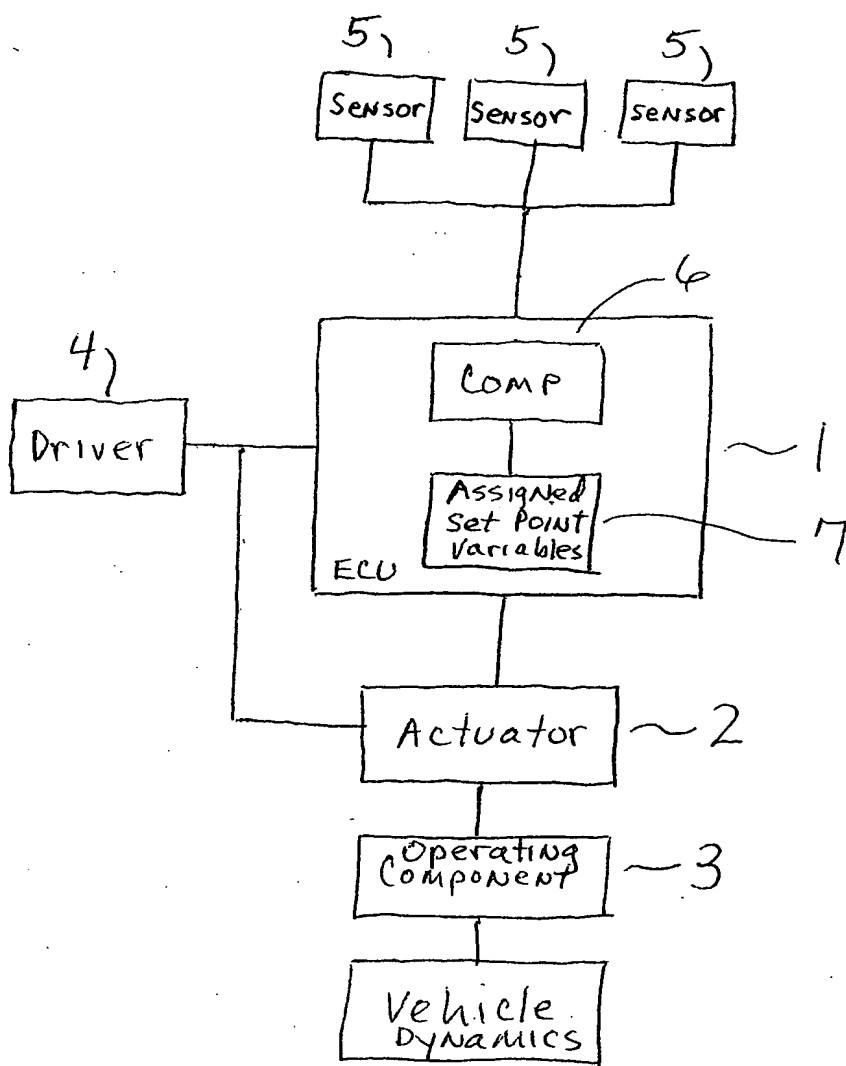 5 5 5
Sensor Sensor Sensor
6
Comp
4
Driver
1
Assigned
Set Point
Variables
7
ECU
Actuator
2
Operating
Component
3
Vehicle
Dynamics